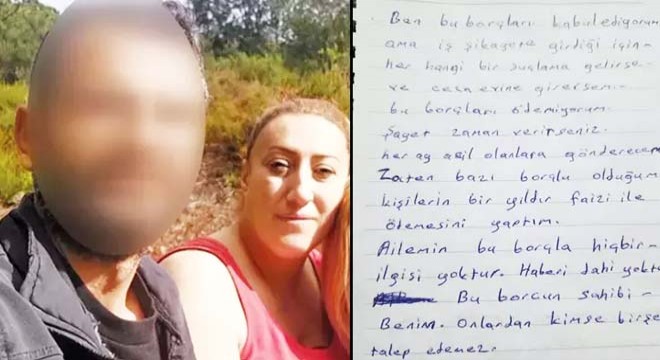 Ben bu borçları kabulediyorum
ama iş şikayete girdiği için-
her hangi bir suçlama gelirse-
ve ceza evine girersem-
bu borçları ödemiyorum.
Şayet zaman verirseniz.
her ay acil olanlara göndereceğim
Zaten bazı borçlu olduğum
kişilerin bir yıldır faizi ile
ödemesini yaptım.
Ailemin bu borçla hiçbir-
ilgisi yoktur. Haberi dahi yoktu
Bu borcun sahibi -
Benim. Onlardan kimse birşe
talep edemez.